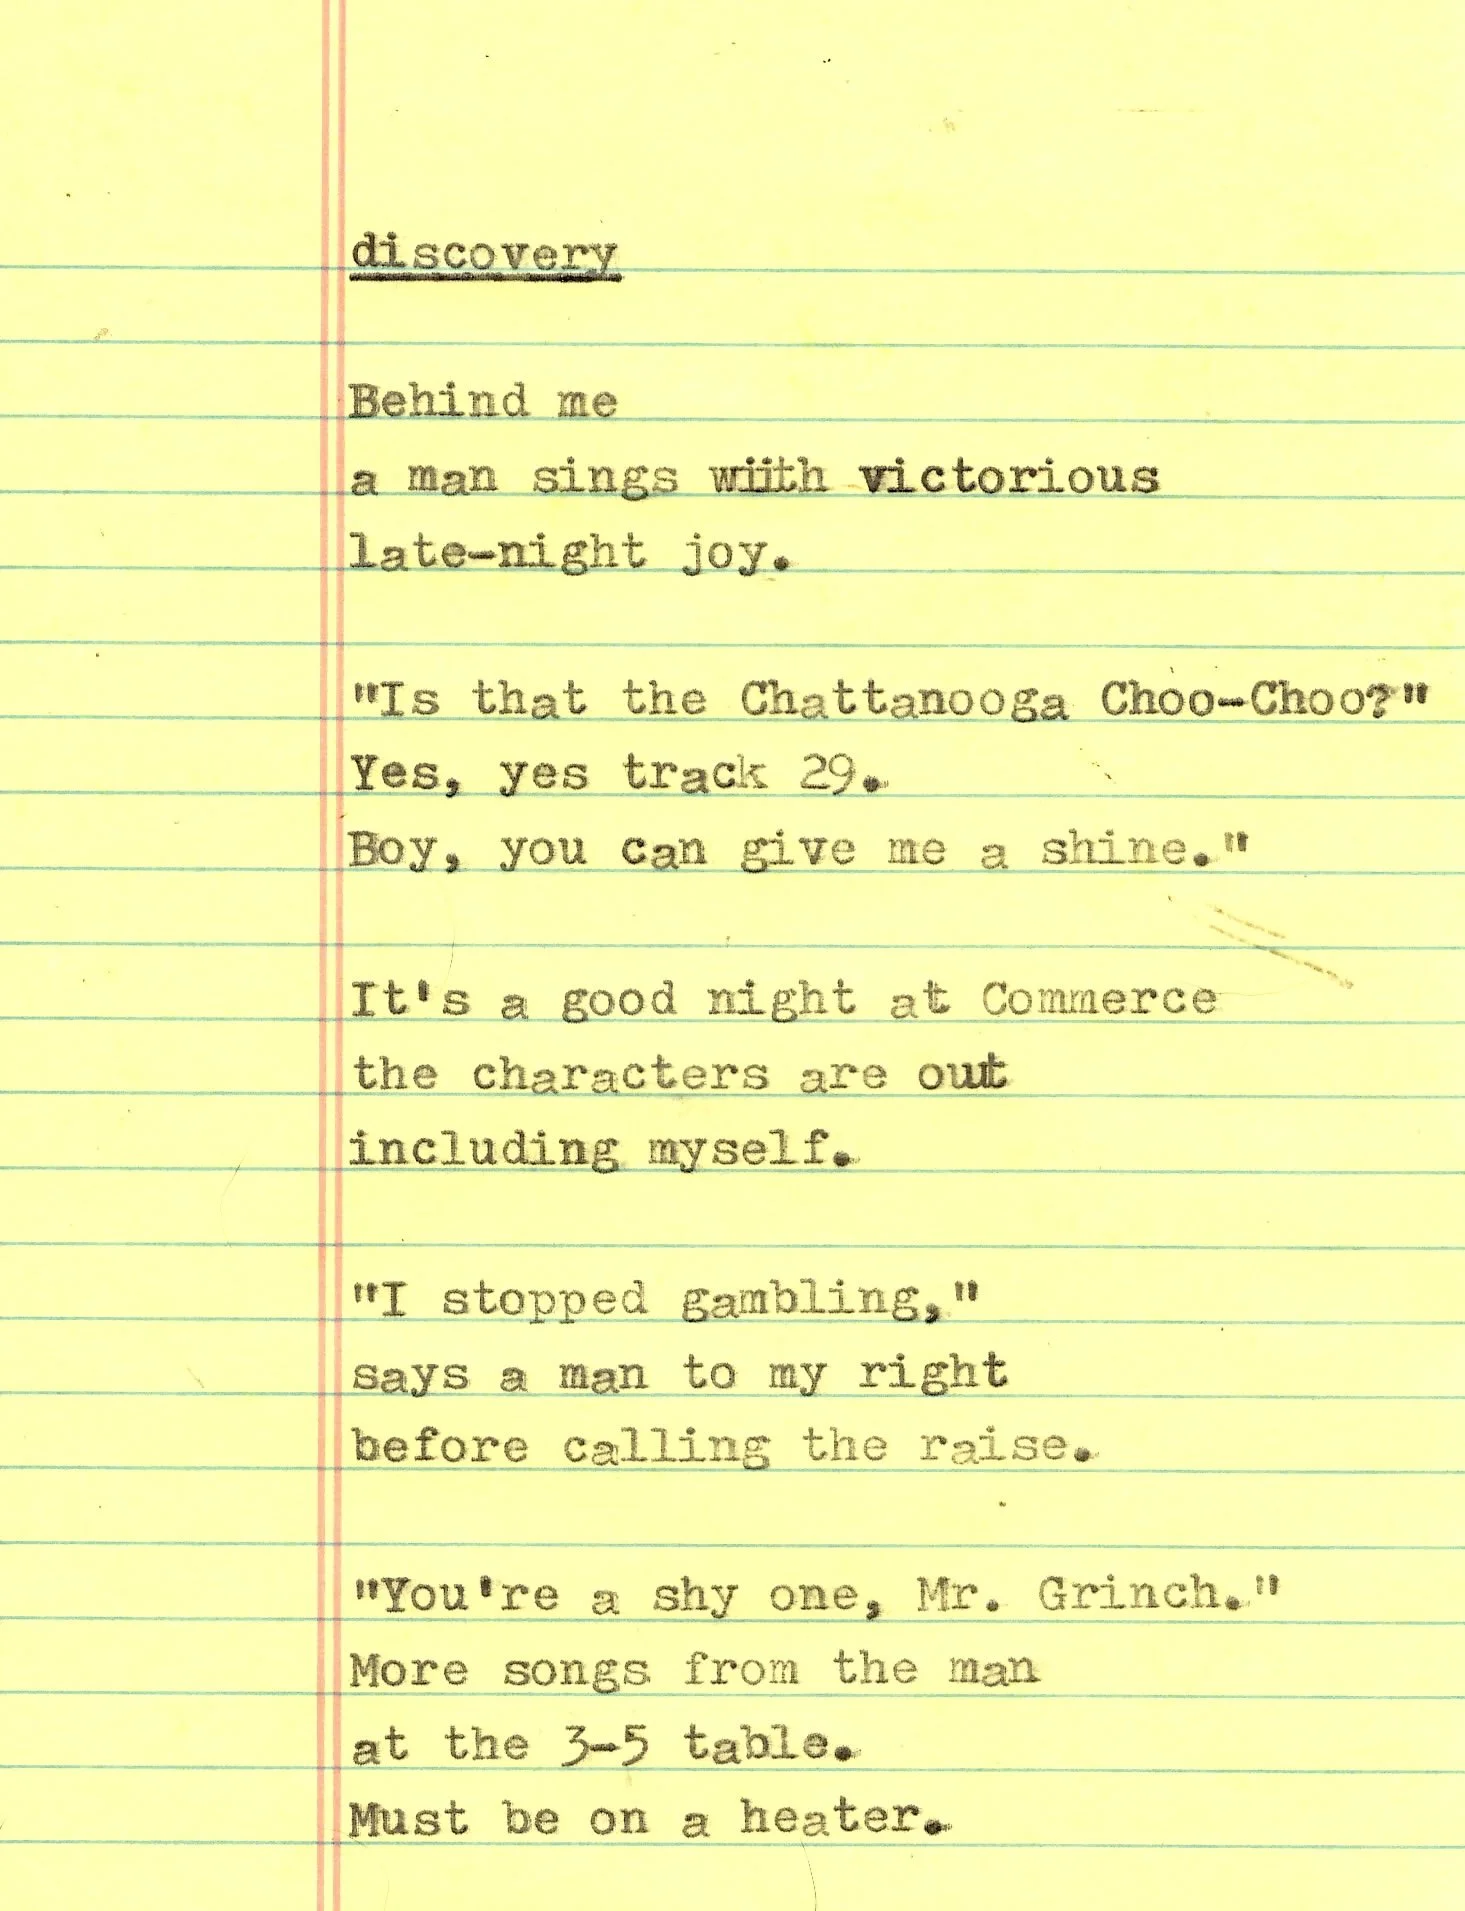 discovery
Behind me
a man sings wiith victorious
late-night joy.
"Is that the Chattanooga Choo-Choo?"
Yes, yes track 29.
Boy, you can give me a shine."
It's a good night at Commerce
the characters are out
including myself.
"I stopped gambling,"
says a man to my right
before calling the raise.
"You're a shy one, Mr. Grinch."
More songs from the man
at the 3-5 table.
Must be on a heater.